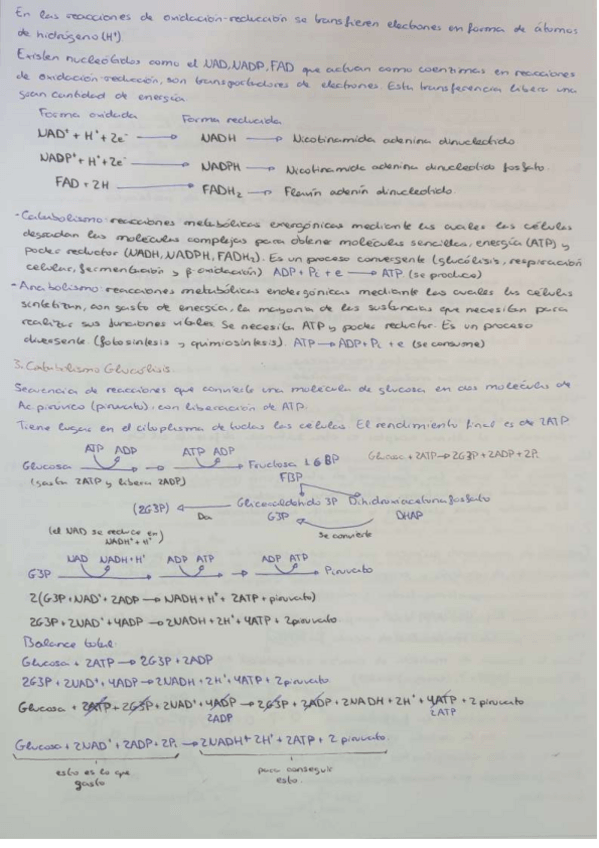 En las reacciones de oxidación-reducción se transfieren electrones en forma de átomos
de hidrógeno (H⁺)
Existen nucleótidos como el NAD, NADP, FAD que actúan como coenzimas en reacciones
de oxidación-reducción, son transportadores de electrones. Esta transferencia libera una
gran cantidad de energía
Forma oxidada Forma reducida
NAD⁺ + H⁺ + 2e⁻ → NADH → Nicotinamida adenina dinucleótido
NADP⁺ + H⁺ + 2e⁻ → NADPH → Nicotinamida adenina dinucleótido fosfato.
FAD + 2H → FADH₂ → Flavín adenín dinucleótido.
- Catabolismo: reacciones metabólicas exergónicas mediante las cuales las células
degradan las moléculas complejas para obtener moléculas sencillas, energía (ATP) y
poder reductor (NADH, NADPH, FADH₂). Es un proceso convergente (glucólisis, respiración
celular, fermentación y β-oxidación) ADP + Pi + e → ATP (se produce)
- Anabolismo: reacciones metabólicas endergónicas mediante las cuales las células
sintetizan, con gasto de energía, la mayoría de las sustancias que necesitan para
realizar sus funciones vitales. Se necesita ATP y poder reductor. Es un proceso
divergente. (fotosíntesis y quimiosíntesis). ATP → ADP + Pi + e (se consume)
3. Catabolismo Glucólisis.
Secuencia de reacciones que convierte una molécula de glucosa en dos moléculas de
Ac. pirúvico (piruvato), con liberación de ATP.
Tiene lugar en el citoplasma de todas las células. El rendimiento final es de 2ATP.
ATP ADP ATP ADP
Glucosa → → → Fructosa 1,6 BP Glucosa + 2ATP → 2G3P + 2ADP + 2Pi
(gasta 2ATP y libera 2ADP) FBP
(2G3P) ← Gliceraldehído 3P Dihidroxiacetona fosfato
Da G3P DHAP
(el NAD se reduce en Se convierte
NADH + H⁺)
NAD NADH + H⁺ ADP ATP ADP ATP
G3P → → → → Piruvato
2(G3P + NAD⁺ + 2ADP → NADH + H⁺ + 2ATP + piruvato)
2G3P + 2NAD⁺ + 4ADP → 2NADH + 2H⁺ + 4ATP + 2piruvato
Balance total:
Glucosa + 2ATP → 2G3P + 2ADP
2G3P + 2NAD⁺ + 4ADP → 2NADH + 2H⁺ + 4ATP + 2piruvato
Glucosa + 2ATP + 2G3P + 2NAD⁺ + 4ADP → 2G3P + 2ADP + 2NADH + 2H⁺ + 4ATP + 2 piruvato
2ADP 2ATP
Glucosa + 2NAD⁺ + 2ADP + 2Pi → 2NADH + 2H⁺ + 2ATP + 2 piruvato.
esto es lo que para conseguir
gasto esto.